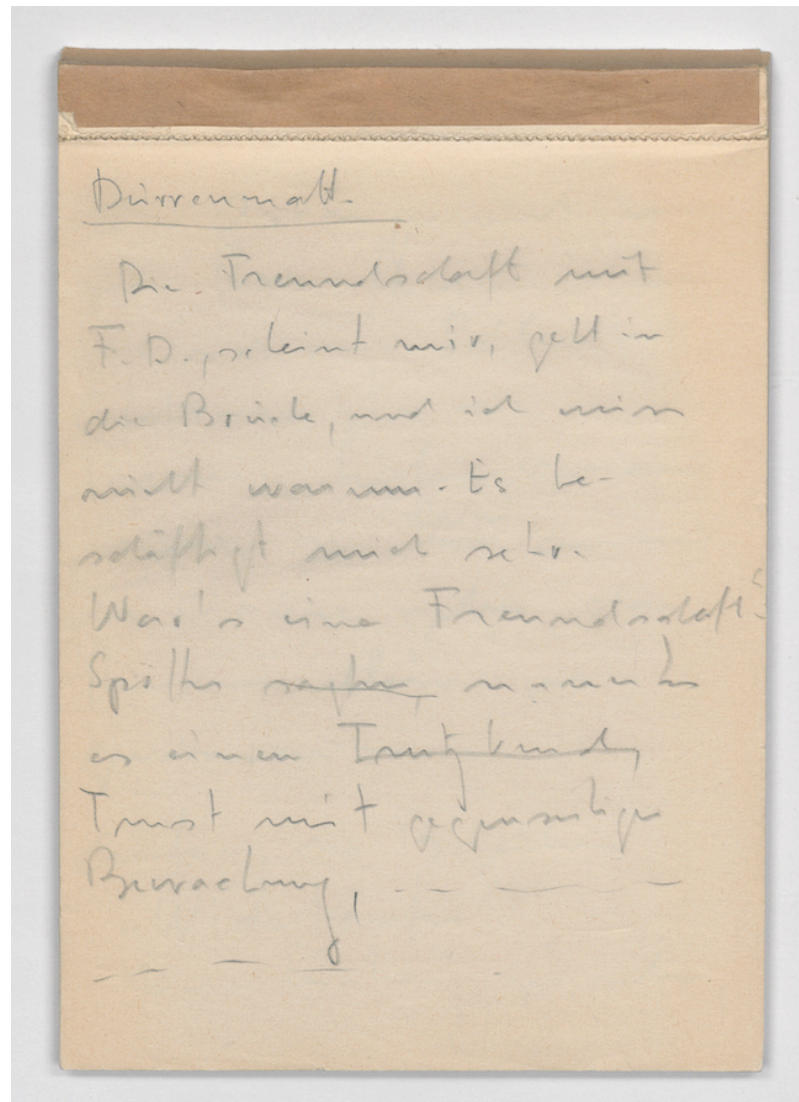 Dürrenmatt.
Die Freundschaft mit
F. D., scheint mir, geht in
die Brüche, und ich weiss
nicht warum. Es be-
schäftigt mich sehr.
War's eine Freundschaft?
Spötter sagten, nannten
es einen Trutzbund,
Trust mit gegenseitiger
Bewachung, — — —
— — — —